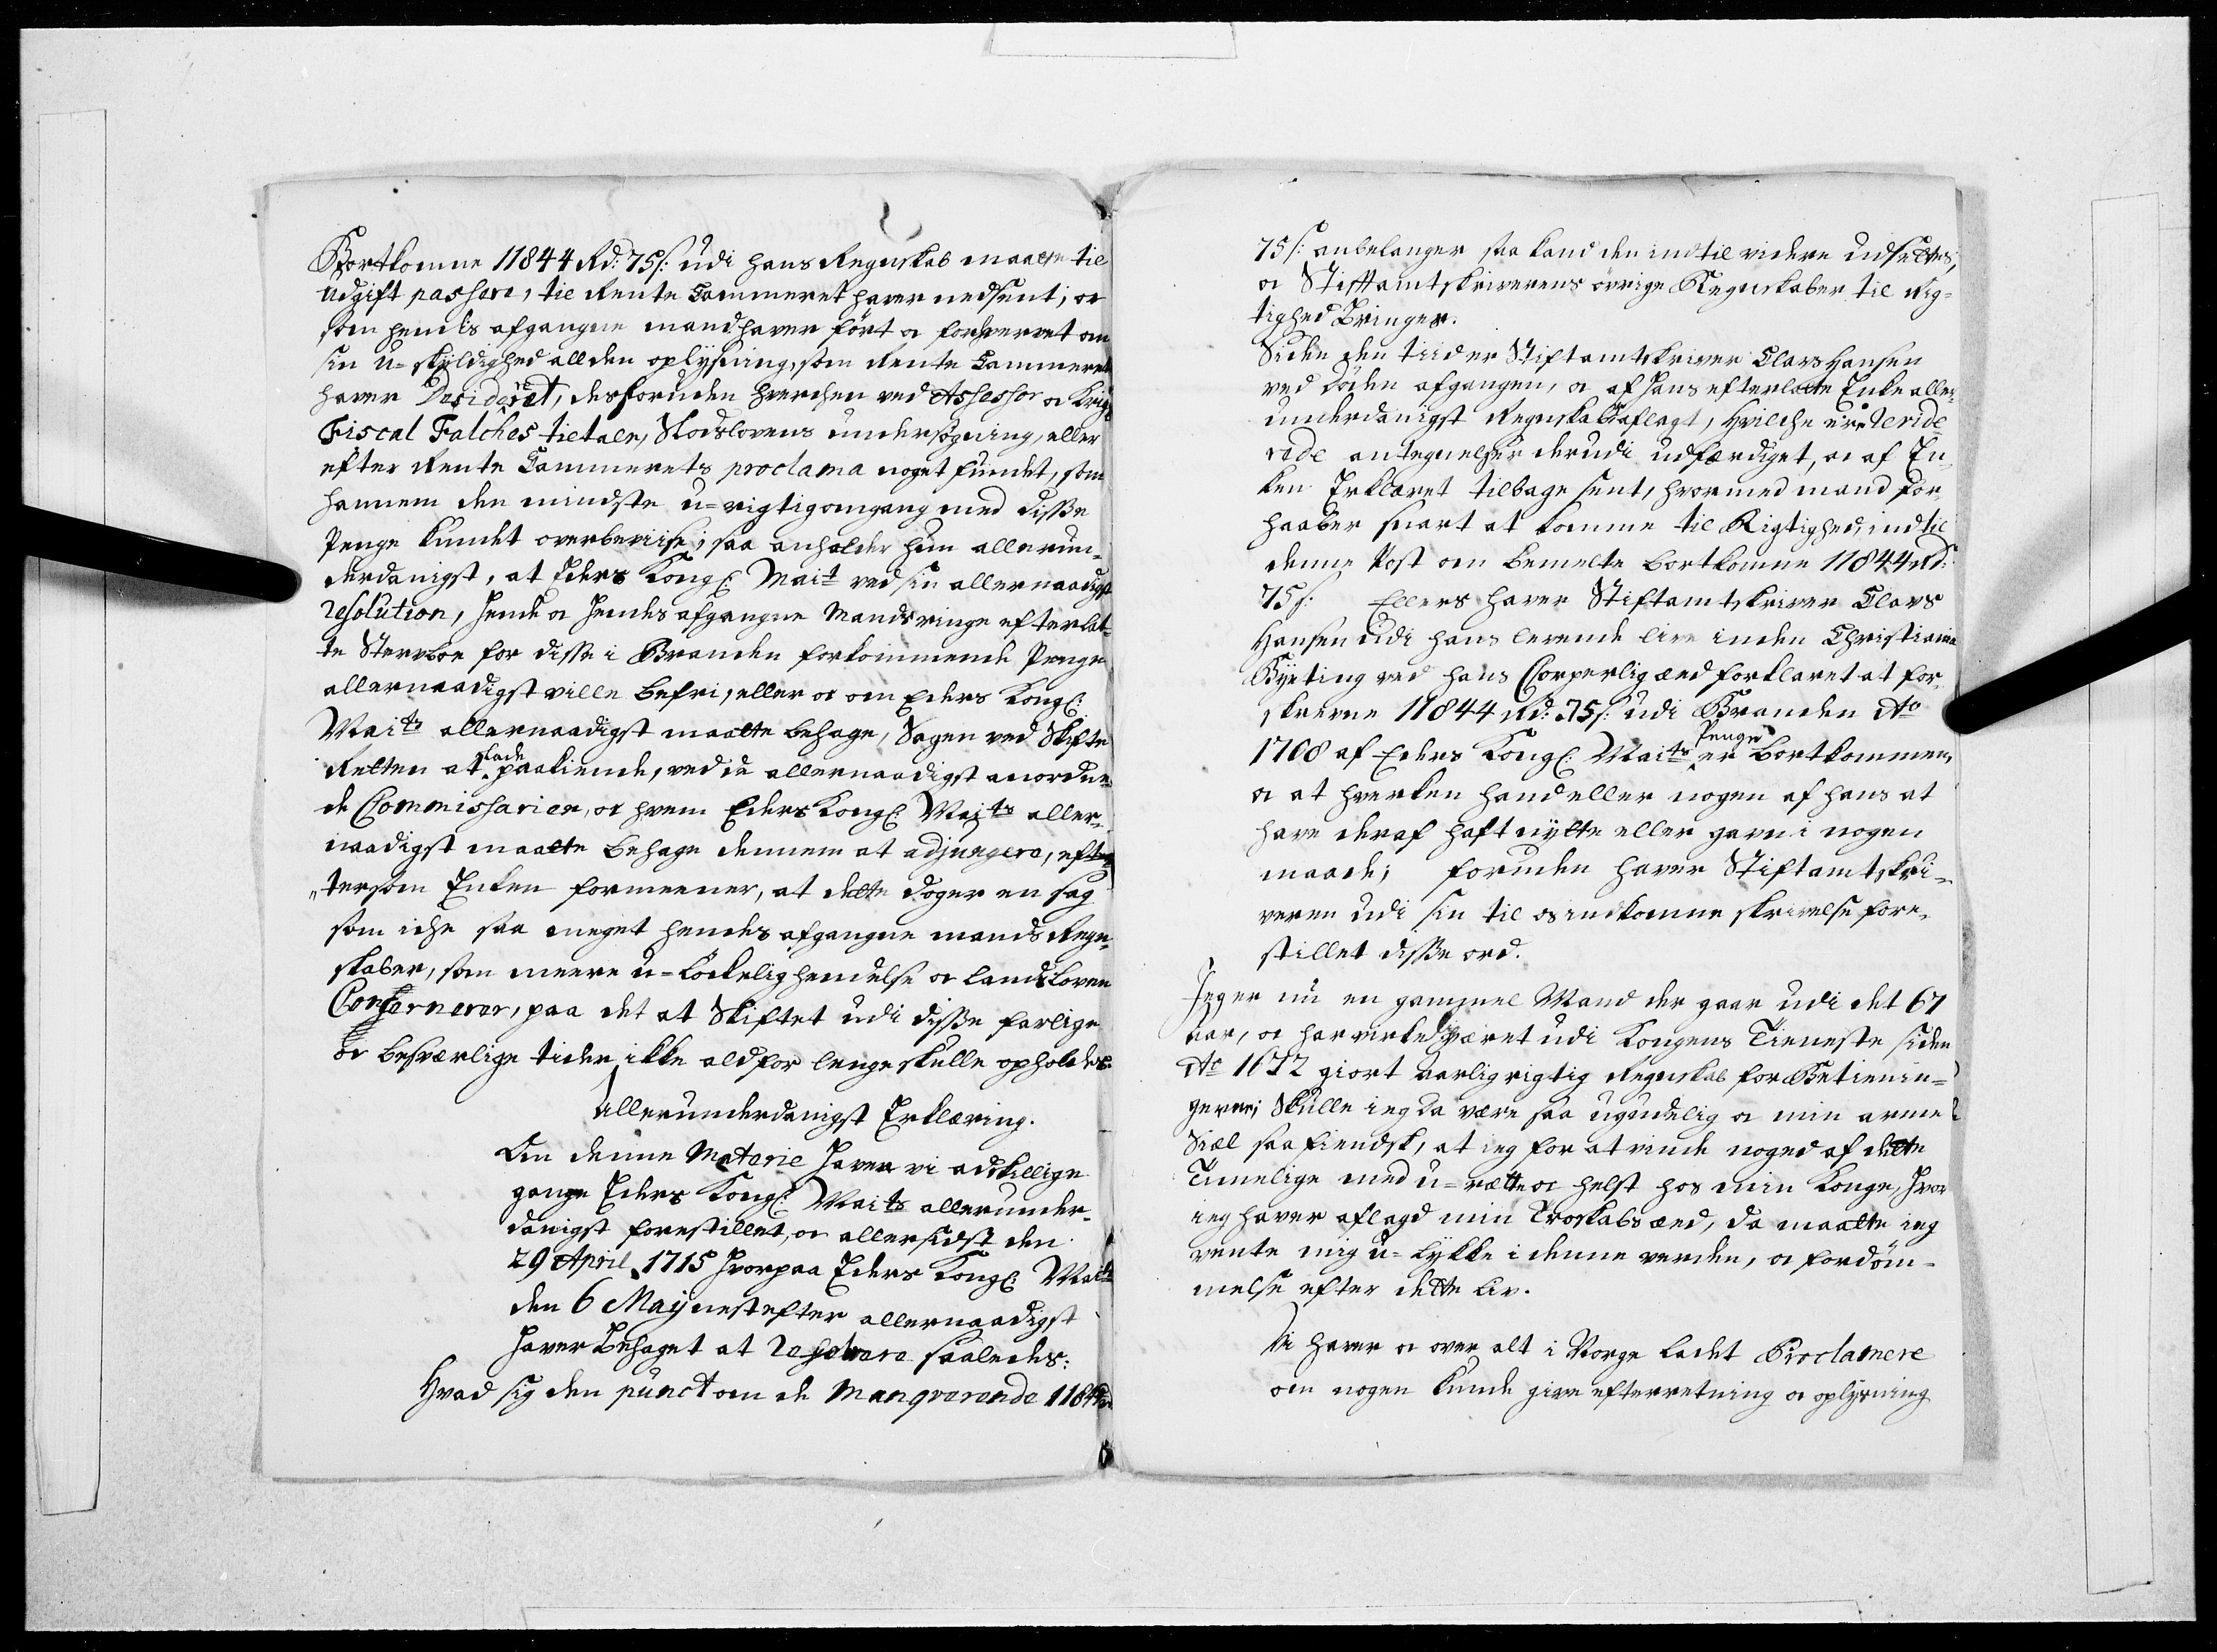 Bortkomne 11844 Rd: 75 s: udi hans Regnskab maatte til
udgift passere, til Rente Cammeret haver nedsent, oc
som hendis afgangne mand haver ført oc forhvervet om
sin u-skyldighed all den oplysning, som Rente Cammeret
haver Desideret, desforuden hverchen ved Assessor oc Krigs
Fiscal Falches tietaln, Slodslovens undersøgning, eller
efter Rente Cammerets proclama noget fundet, som
hannem den mindste u-rigtig omgang med disse
Penge kundet overbeviise; saa anholder hun allerun-
derdanigst, at Eders Kongl: Mait ved sin allernaadigst
resolution, hende oc hendes afgangne Mands ringe efterlat-
te Sterboe for disse i Branden forkommende Penge
allernaadigst ville befri, eller oc om Eders Kongl:
Maits allernaadigst maatte behage, Sagen ved Skifte
Retten at lade paakiende, ved de allernaadigst anordne-
de Commissarier, oc hvem Eders Kongl: Maits aller-
naadigst maatte behage dennem at adjungere, efter
tersom Enken formeener, at dette dog er en sag
som iche saa meget hendes afgangne mands Regn-
skaber, som meere u-löckelig hendelse oc landsloven
Concernerer, paa det at Skiftet udi disse farlige
oc besværlige tider ikke alt for lenge skulle opholdes.
Allerunderdanigst Erklæring.
Om denne Materie haver vi adskillige
gange Eders Kongl: Maits allerunder-
danigst forestillet, oc allersidst den
29 April 1715 hvorpaa Eders Kongl: Maits
den 6 Maij nest efter allernaadigst
haver behaget at resolvere saaledes:
Hvad sig den punct om de Manqverende 11844 Rd
75 s: anbelanger saa kand den indtil videre udsættes,
oc Stiftamtskriverens övrige Regnskaber til rig-
tighed bringes.
Siden den tiid er Stiftamtskriver Clavs Hansen
ved döden afgangen, oc af hans efterlatte Enke aller-
underdanigst Regnskab aflagt, hvilche ere revide-
rede antegnelser derudi udfærdiget, oc af En-
ken Erklæret tilbage sent, hvormed mand for-
haaber snart at komme til Rigtighed, indtil
denne Post om bemelte bortkomne 11844 Rd:
75 s: Ellers haver Stiftamtskriver Clavs
Hansen udi hans levende live inden Christiania
Byeting ved hans Corperlig æed forklaret at for-
skrevne 11844 Rd: 75 s: udi Branden Ao
1708 af Eders Kongl: Maits Penge er bortkommen,
oc at hverken hand eller nogen af hans at
have deraf haft nytte eller gavn i nogen
maade; foruden haver Stiftamtskri-
veren udi sin til os indkomne skrivelse fore-
stillet disse ord.
Jeg er nu en gammel Mand der gaar udi det 67
aar, oc har været udi Kongens Tieneste siden
Ao 1672 giort aarlig rigtig Regnskab for Betienin-
gerne; Skulle ieg da være saa ugudelig oc min arme
Siæl saa fiendsk, at ieg for at vinde noged af dette
Timelige med u-rætte oc helst hos min Konge, hvor
ieg haver aflagd min Troskabs æed, da maatte ieg
vente mig u-lykke i denne verden, oc fordöm-
melse efter dette liv.
Vi haver oc over alt i Norge ladet Proclamere
om nogen kunde give efterretning oc oplysning